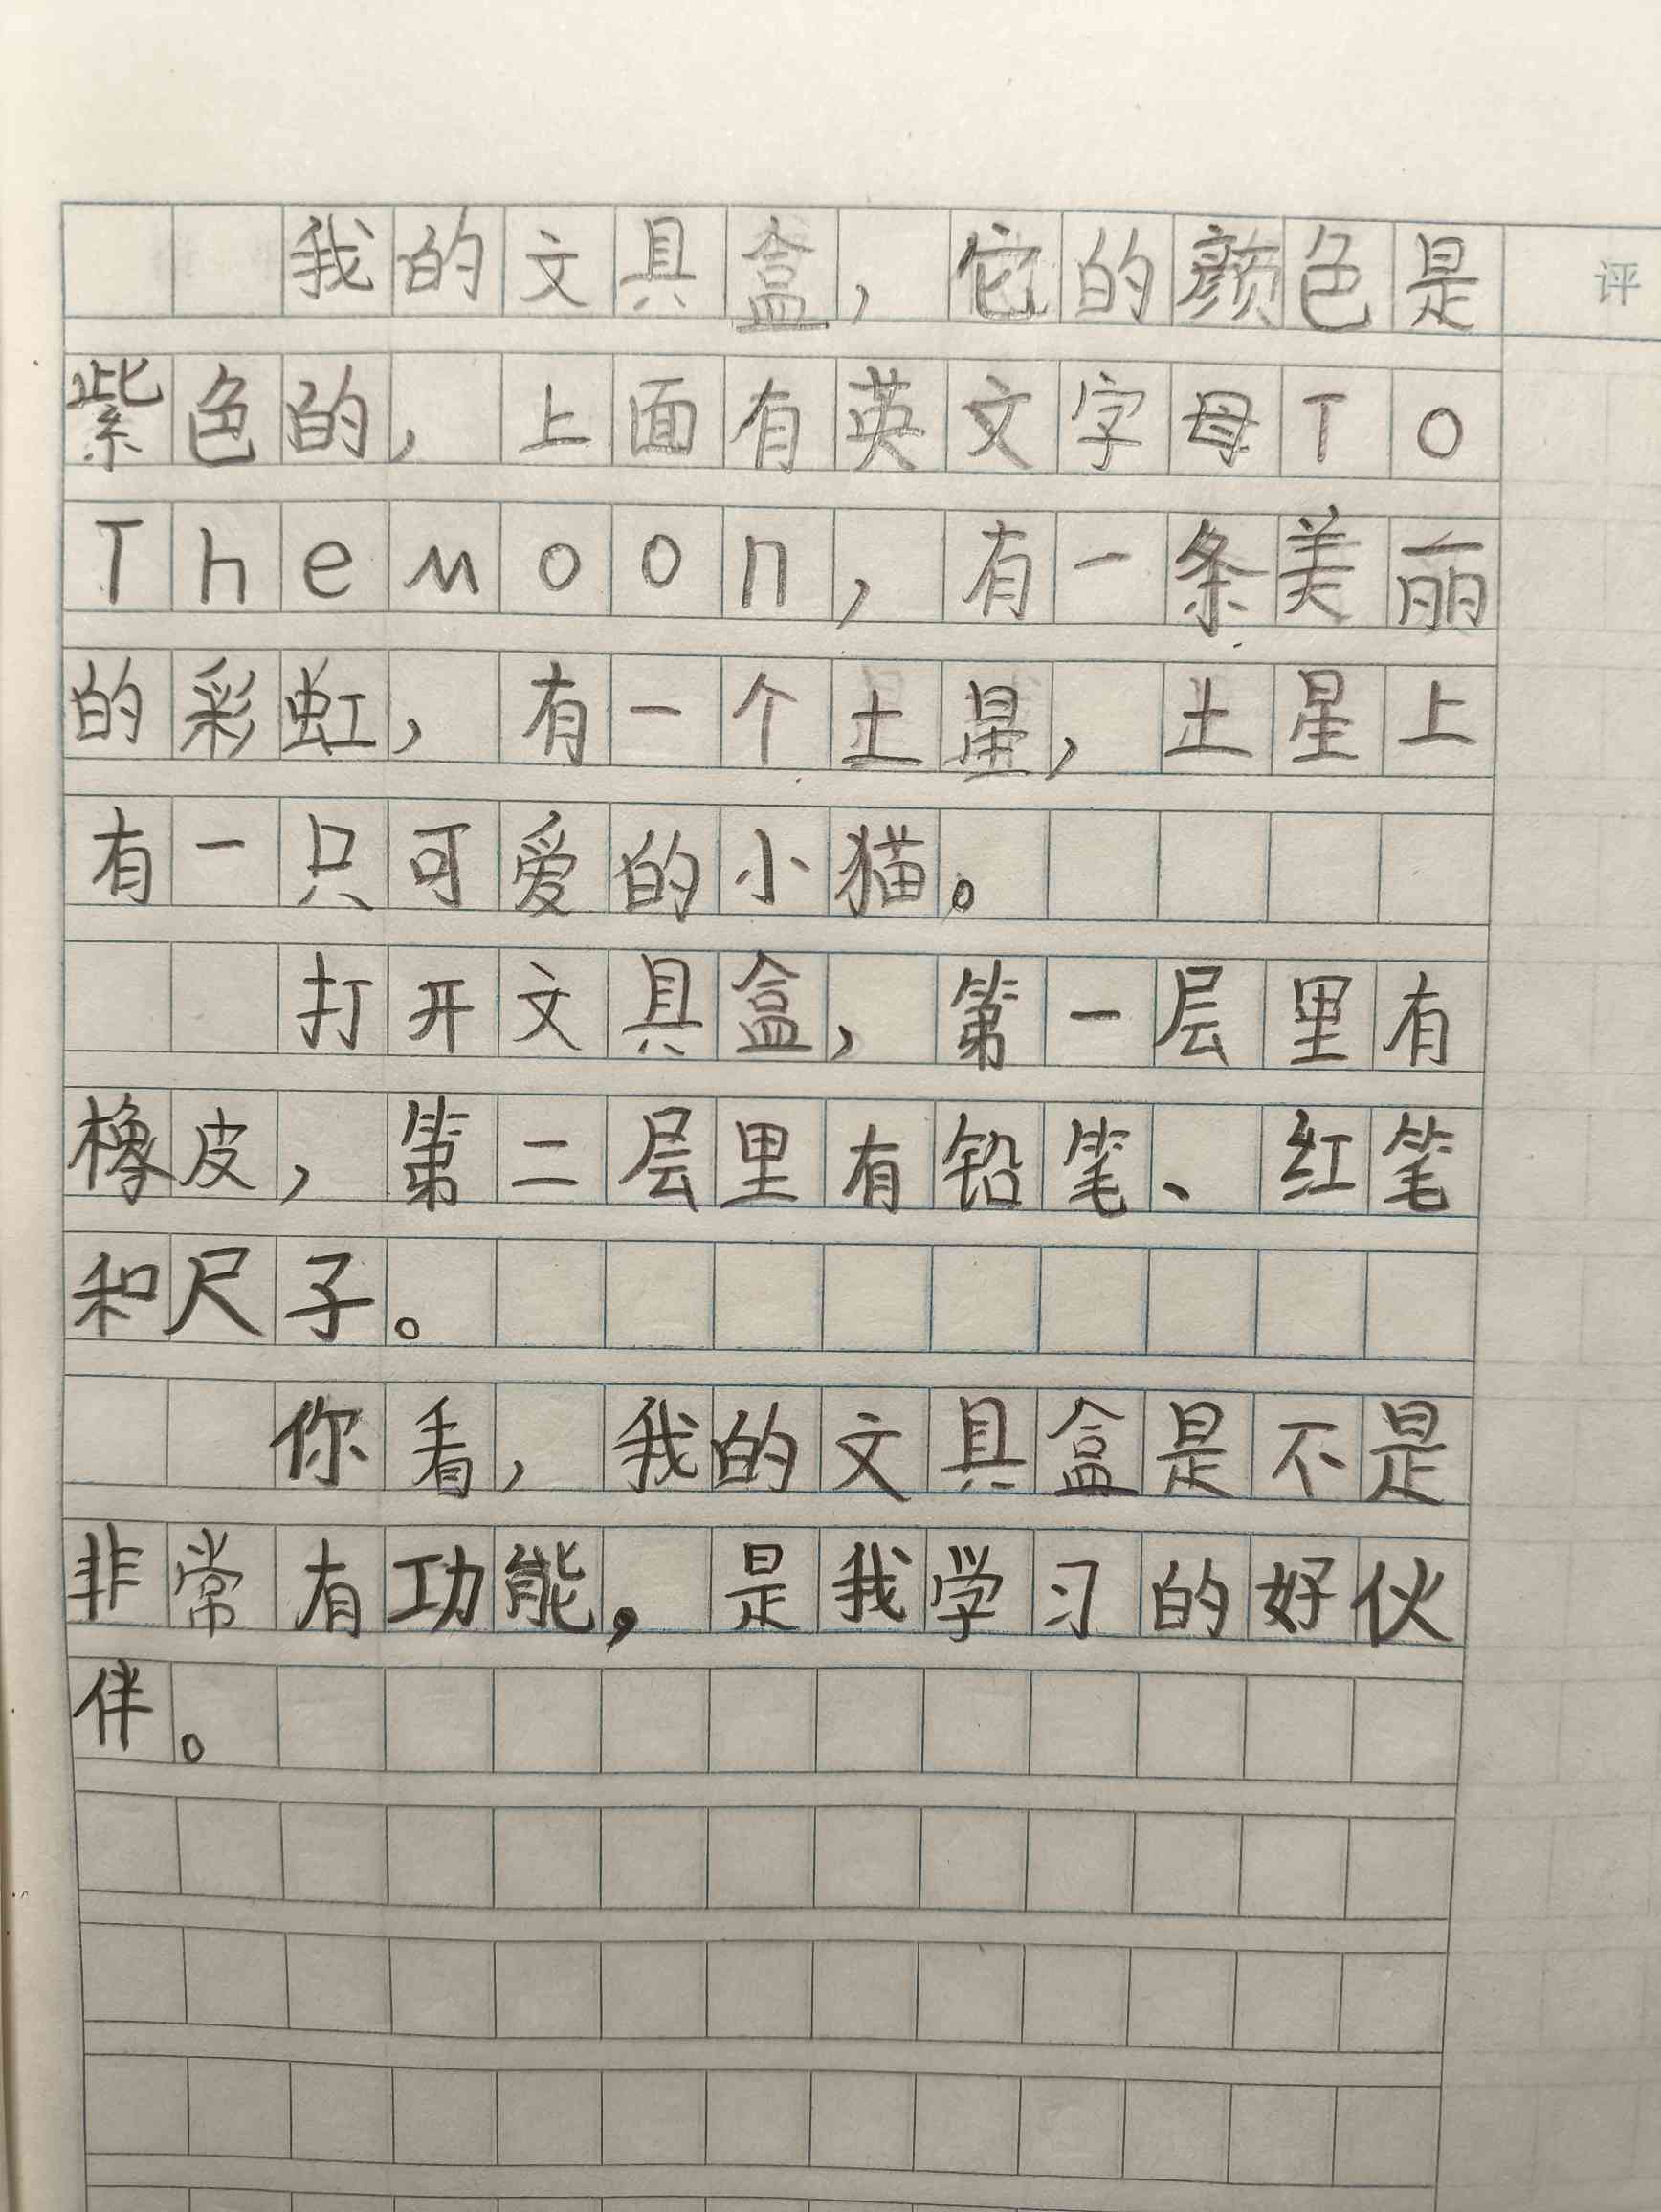 我的文具盒，它的颜色是
评
紫色的，上面有英文字母TO
Themoon，有一条美丽
的彩虹，有一个土星，土星上
有一只可爱的小猫。
打开文具盒，第一层里有
橡皮，第二层里有铅笔、红笔
和尺子。
你看，我的文具盒是不是
非常有功能，是我学习的好伙
伴。